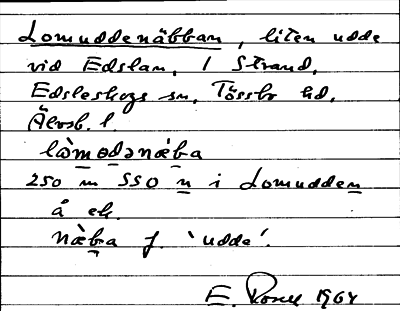 Lomuddenäbban, liten udde
vid Edslan, 1 Strand,
Edsleskogs sn, Tössbo hd,
Älvsb. l.
lòmɵdənæ̀ba
250 m SSO n i Lomudden
å ek.
næ̀ba f. 'udde'.
E. 1964